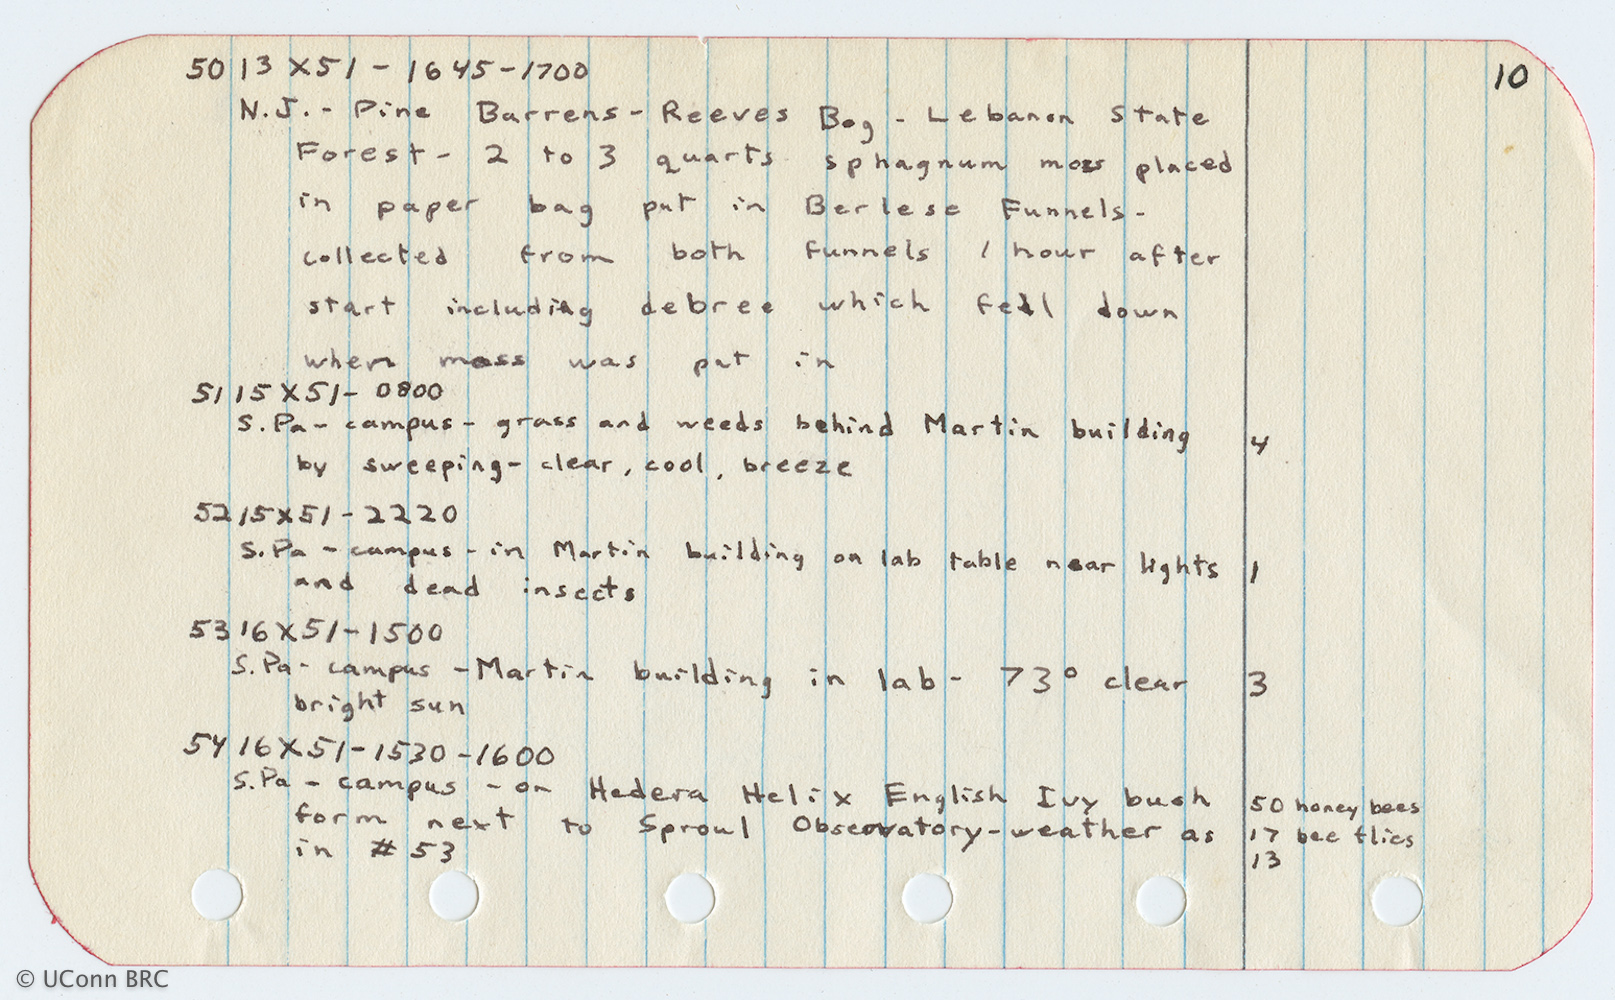 50 13 X 51 - 1645-1700 10
N.J. - Pine Barrens - Reeves Bog - Lebanon State
Forest - 2 to 3 quarts sphagnum moss placed
in paper bag put in Berlese Funnels -
collected from both funnels 1 hour after
start including debree which fell down
when moss was put in
51 15 X 51 - 0800
S. Pa - campus - grass and weeds behind Martin building 4
by sweeping - clear, cool, breeze
52 15 X 51 - 2220
S. Pa - campus - in Martin building on lab table near lights 1
and dead insects
53 16 X 51 - 1500
S. Pa - campus - Martin building in lab - 73° clear 3
bright sun
54 16 X 51 - 1530 - 1600
S. Pa - campus - on Hedera Helix English Ivy bush 50 honey bees
form next to Sproul Observatory - weather as 17 bee flies
in #53 13
© UConn BRC